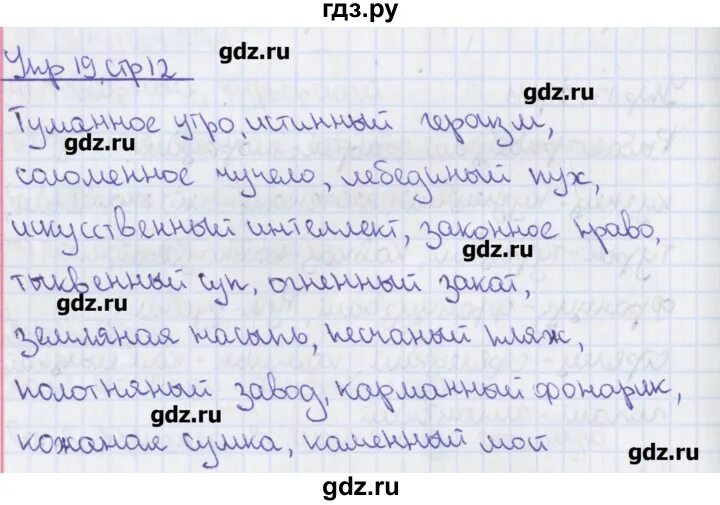 гдз.ру
Упр 19, стр 12
gdz.ru
gdz.ru
Туманное утро, истинный героизм,
gdz.ru
соломенное чучело, лебединый пух,
искусственный интеллект, законное право,
gdz.ru
тыквенный суп, огненный закат,
gdz.ru
земляная насыпь, песчаный пляж,
полотняный завод, карманный фонарик,
gdz.ru
кожаная сумка, каменный мост
gdz.ru
gdz.ru